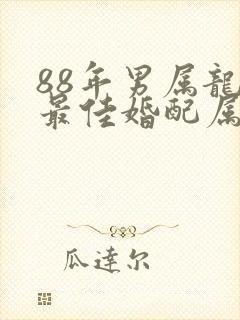 88年男属龍
最佳婚配属
瓜達尔